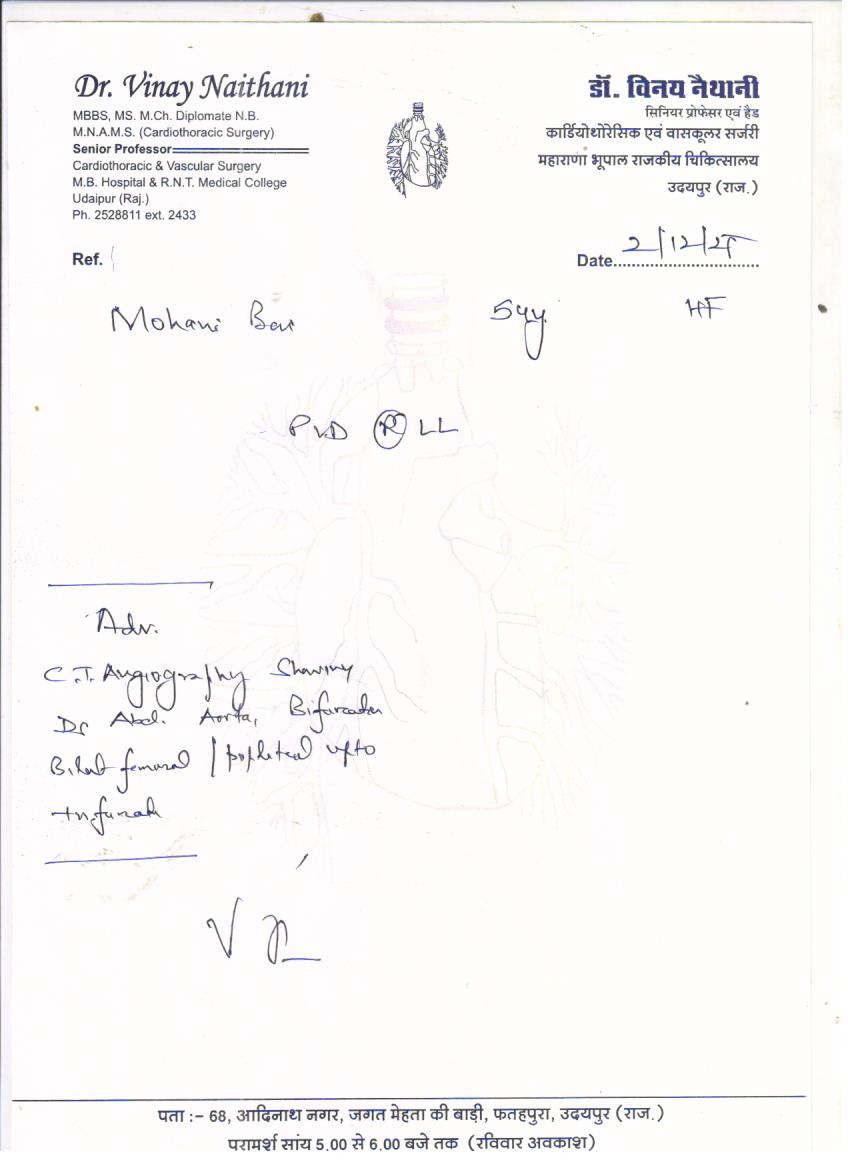 Dr. Vinay Naithani
MBBS, MS. M.Ch. Diplomate N.B.
M.N.A.M.S. (Cardiothoracic Surgery)
Senior Professor
Cardiothoracic & Vascular Surgery
M.B. Hospital & R.N.T. Medical College
Udaipur (Raj.)
Ph. 2528811 ext. 2433
डॉ. विनय नैथानी
सिनियर प्रोफेसर एवं हैड
कार्डियोथोरेसिक एवं वासकूलर सर्जरी
महाराणा भूपाल राजकीय चिकित्सालय
उदयपुर (राज.)
Ref.
Date.................................
Mohani
PVD (R) LL
Adv.
C.T. Angiography Showing
Abd. Aorta,
femoral / popliteal upto
पता :– 68, आदिनाथ नगर, जगत मेहता की बाड़ी, फतहपुरा, उदयपुर (राज.)
परामर्श सांय 5.00 से 6.00 बजे तक (रविवार अवकाश)